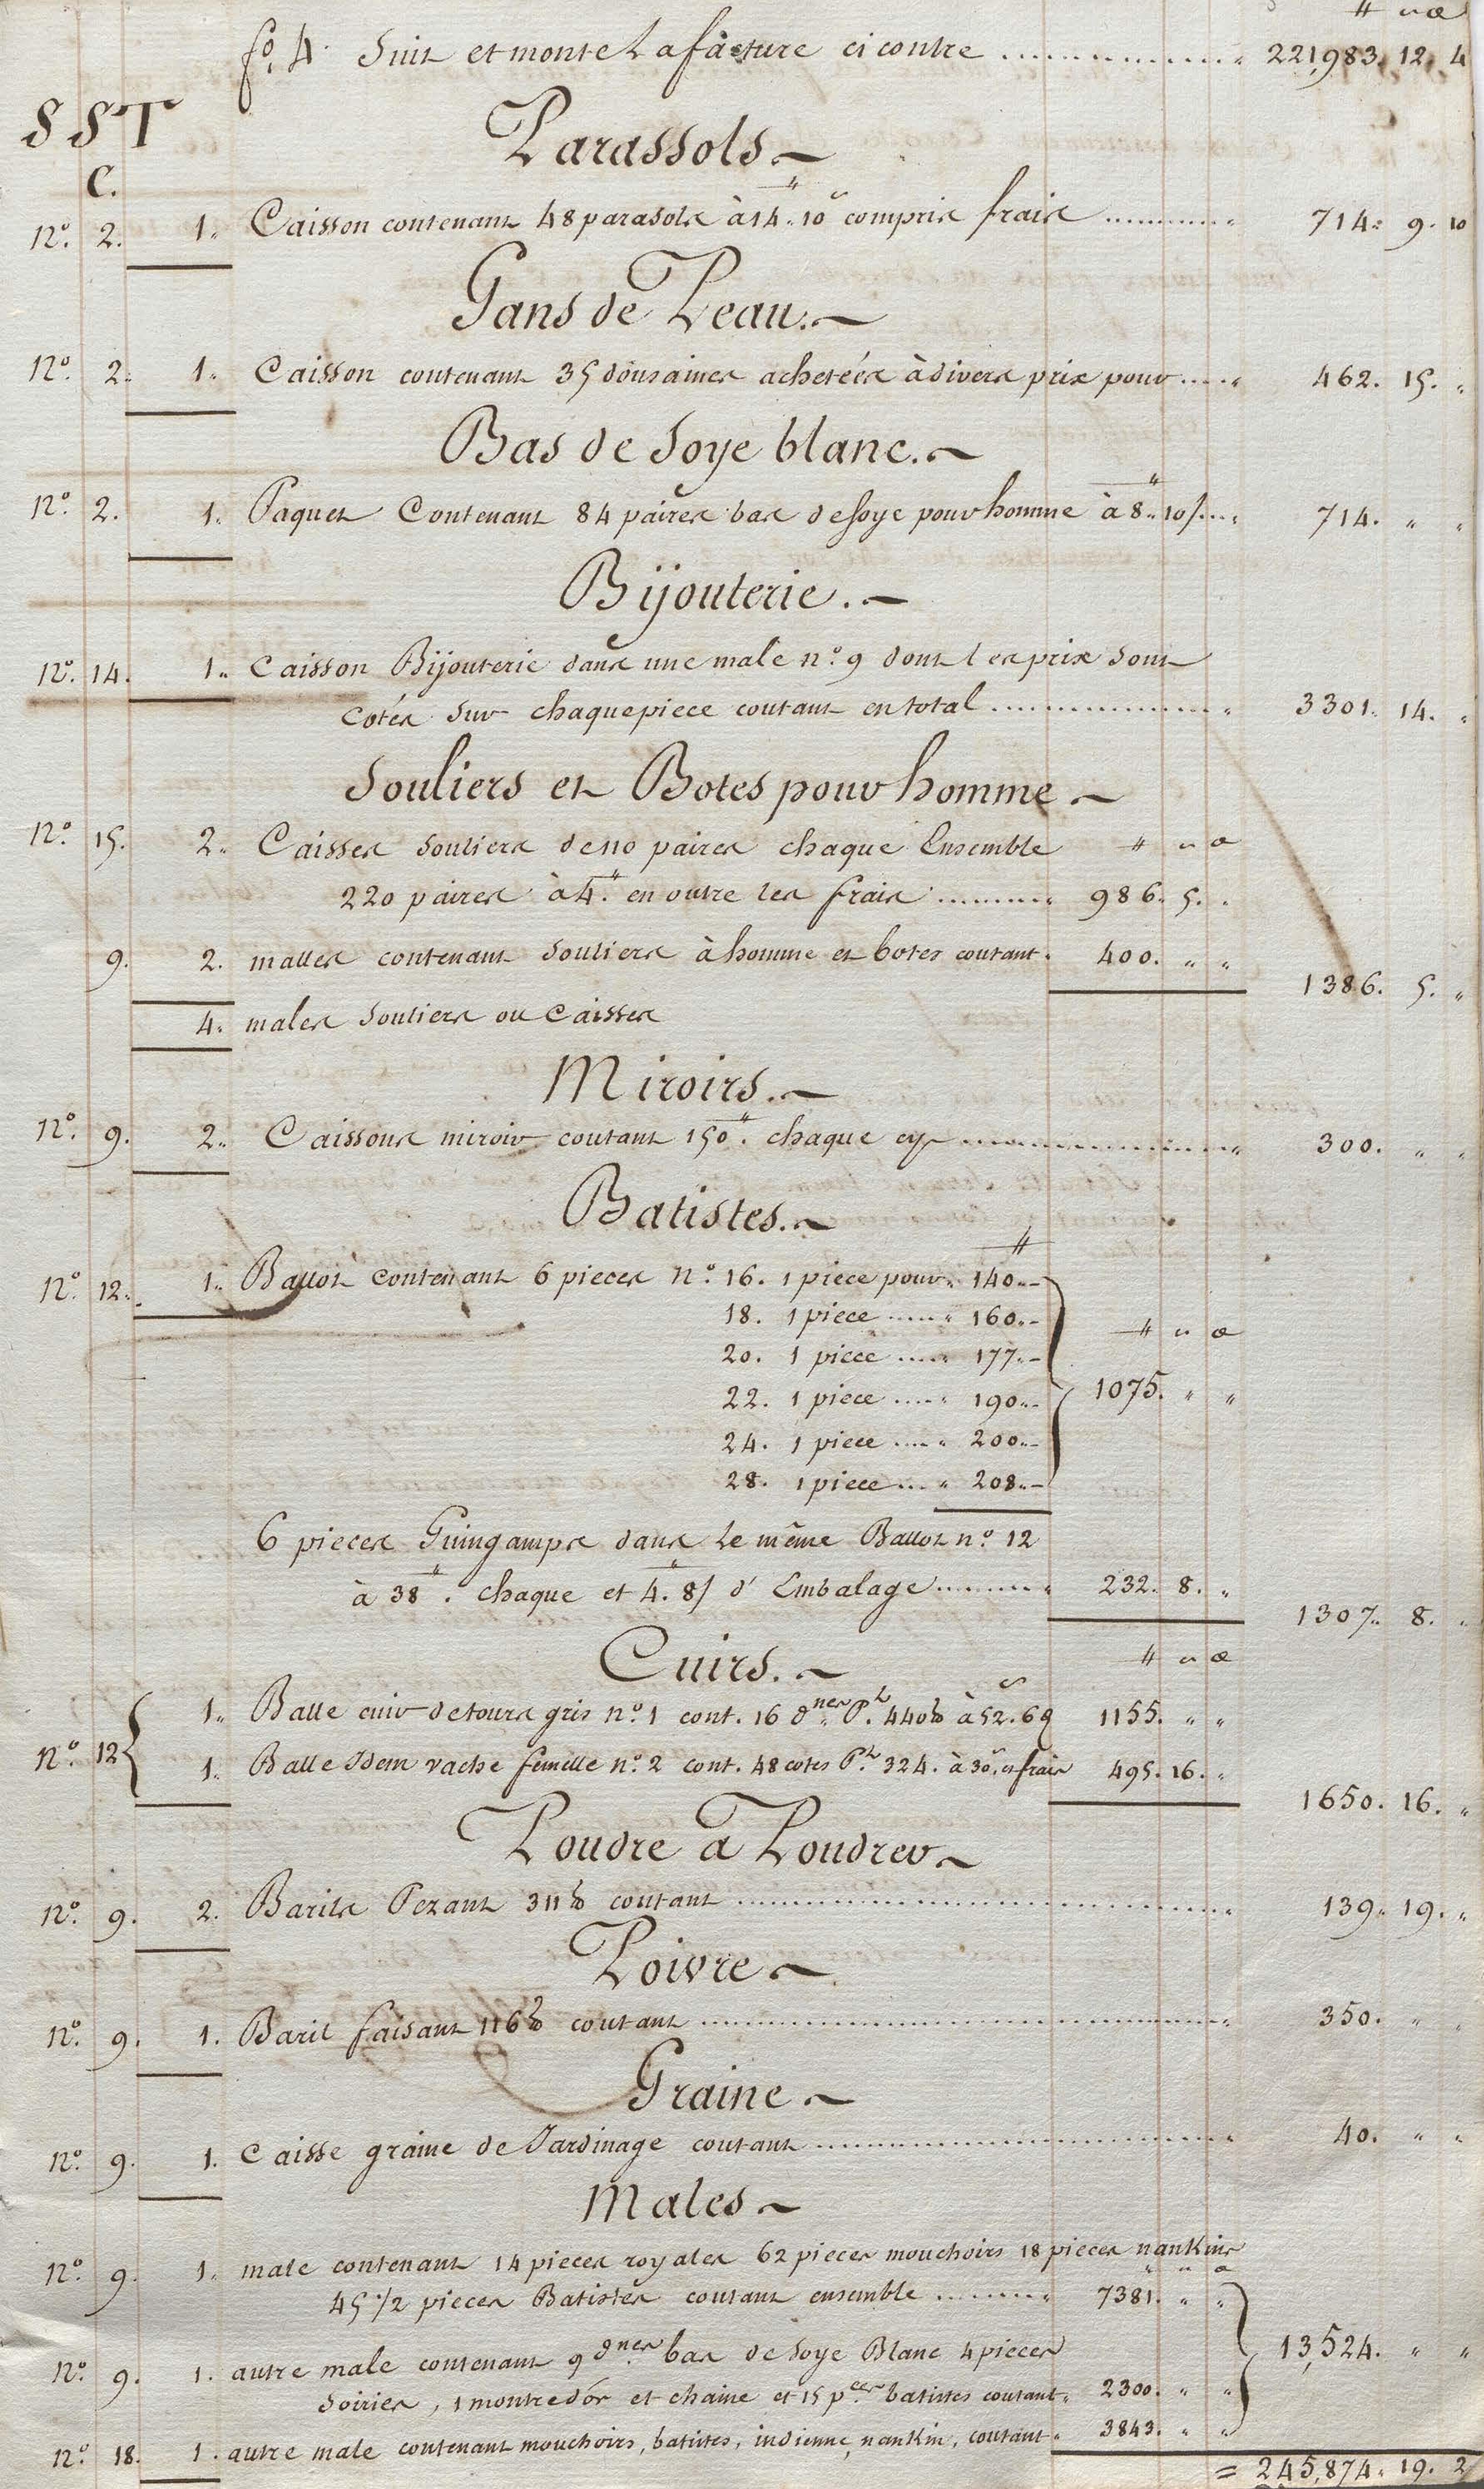 ₶ s ₰
fº. 4. Suit et monte La facture ci contre ............ " 221,983. 12. 4
SST
C.
Parassols
Nº. 2. 1. Caisson contenant 48 parasols à 14₶.. 10s compris frais ............ " 714. 9. 10
Gans de Peau.
Nº. 2. 1. Caisson contenant 35 dousaines achetées à divers prix pour ..... " 462. 15. "
Bas de Soye blanc.
Nº. 2. 1. Paquet Contenant 84 paires bas de soye pour homme à 8₶.. 10/... " 714. " "
Bijouterie.
Nº. 14. 1. Caisson Bijouterie dans une male nº. 9 dont les prix sont
cotés sur chaque piece coutant en total ............ " 3301. 14. "
Souliers et Botes pour homme
Nº. 15. 2. Caisses souliers de 110 paires chaque Ensemble ₶ s ₰
220 paires à 4₶. en outre les frais ......... " 986. 5. "
9. 2. malles contenant souliers à homme et botes coutant. 400. " "
1386. 5. "
4. males souliers ou caisses
Miroirs.
Nº. 9. 2. Caissons miroir coutant 150₶. chaque cy ............ " 300. " "
Batistes.
₶
Nº. 12. 1. Ballot contenant 6 pieces Nº. 16. 1 piece pour. 140..-
18. 1 piece ..... " 160..-
₶ s ₰
20. 1 piece ..... " 177..-
22. 1 piece ..... " 190..- 1075. " "
24. 1 piece ..... " 200..-
28. 1 piece ..... " 208..-
6 pieces Guingamps dans le même Ballot nº. 12
à 38₶. chaque et 4₶. 8/ d'Embalage ......... " 232. 8. "
1307. 8. "
Cuirs. ₶ s ₰
1. Balle cuir de tours gris nº. 1 cont. 16 dnes. Pt. 440 ℔ à 52s. 6 ₰ 1155. " "
Nº. 12
1. Balle Idem vache femelle nº. 2 cont. 48 cotes Pt. 324. à 30s. et frais 495. 16. "
1650. 16. "
Poudre a Poudrer
Nº. 9. 2. Barils Pezant 311 ℔ coutant ............ " 139. 19. "
Poivre
Nº. 9. 1. Baril faisant 116 ℔ coutant ............ " 350. " "
Graine
Nº. 9. 1. Caisse graine de Jardinage coutant ............ " 40. " "
Males
Nº. 9. 1. male contenant 14 pieces royales 62 pieces mouchoirs 18 pieces nankins
45 1/2 pieces Batistes coutant ensemble ......... " 7381. " "
13,524. " "
Nº. 9. 1. autre male contenant 9 dnes. bas de Soye Blanc 4 pieces
Soiries, 1 montre d'or et chaine et 15 pces. batistes coutant. 2300. " "
Nº. 18. 1. autre male contenant mouchoirs, batistes, indienne, nankin, coutant. 3843. " "
= 245,874. 19. 2